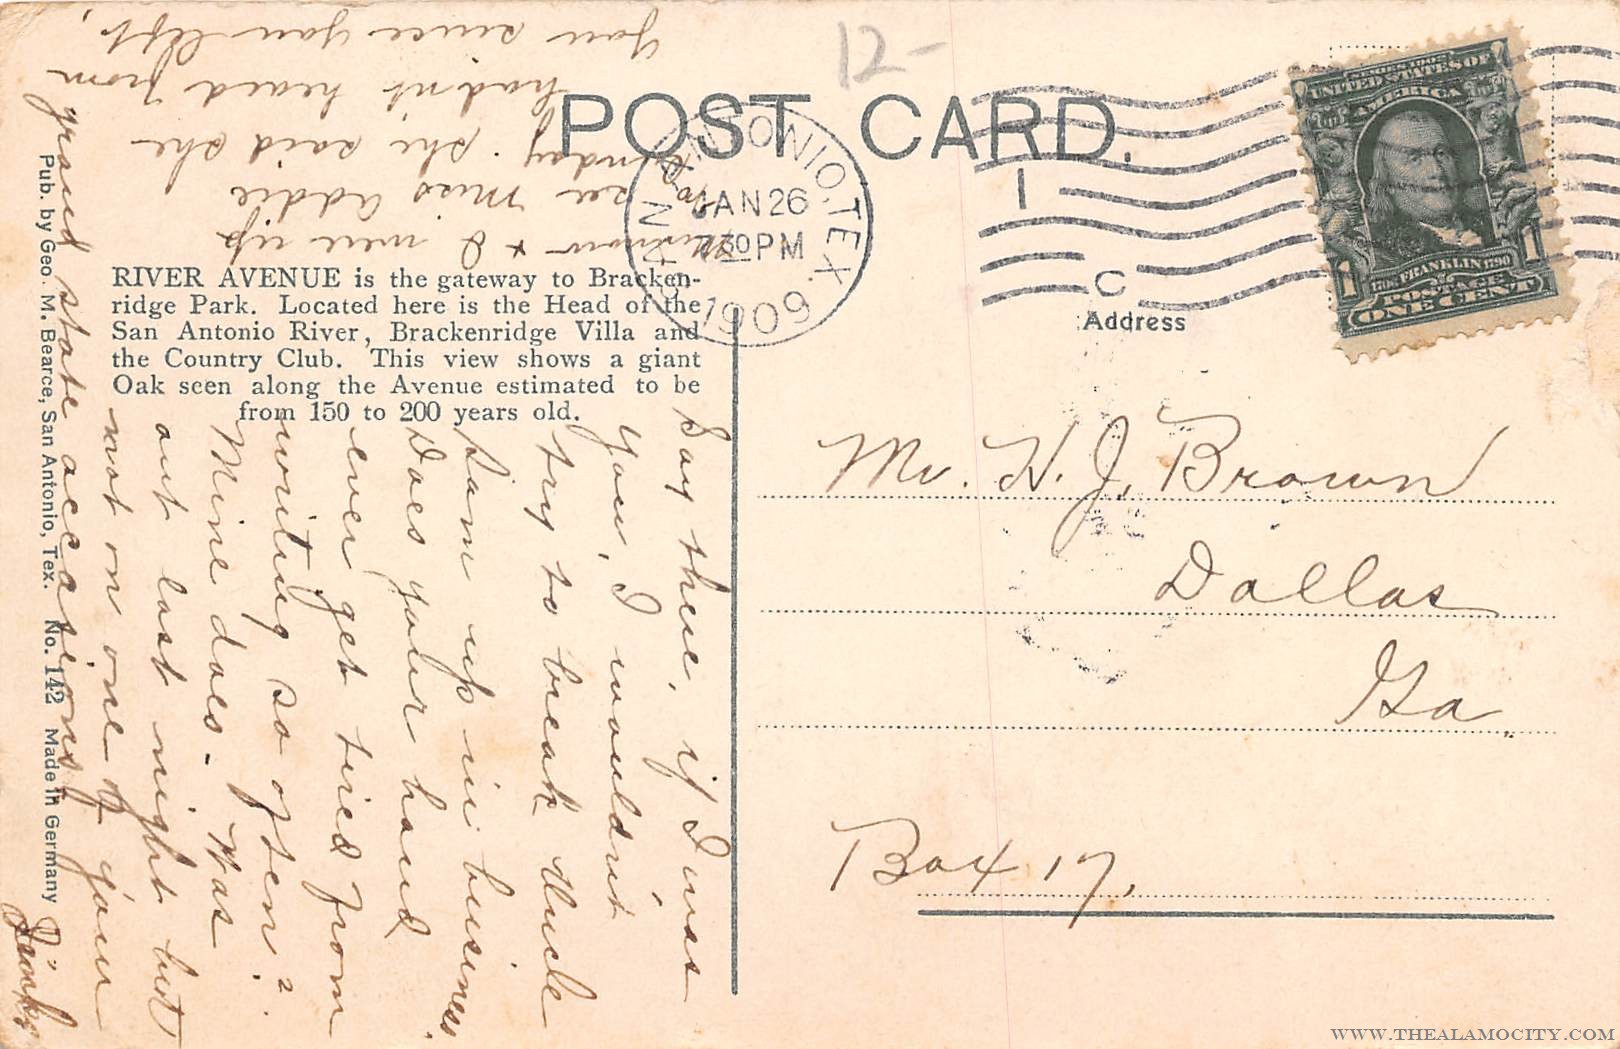 12-
POST CARD.
SAN ANTONIO, TEX.
JAN 26
2 30 PM
1909
1
C
SERIES 1902
UNITED STATES OF
AMERICA
FRANKLIN 1790
1706
POSTAGE
1 1
ONE CENT
Address
RIVER AVENUE is the gateway to Bracken-
ridge Park. Located here is the Head of the
San Antonio River, Brackenridge Villa and
the Country Club. This view shows a giant
Oak seen along the Avenue estimated to be
from 150 to 200 years old.
Mr. H. J. Brown
Dallas
Ga
Box 17,
Say there, if I was
you, I wouldn't
try to break Uncle
Sam up in business.
Does your hand
ever get tired from
writing so often?
Mine does. - Was
out last night but
not on one of your
grand state occasions.
& I were up
to see Miss Addie
Sunday. She said she
hadn't heard from
you since you left.
Pub. by Geo. M. Bearce, San Antonio, Tex. No. 142 Made in Germany
WWW.THEALAMOCITY.COM